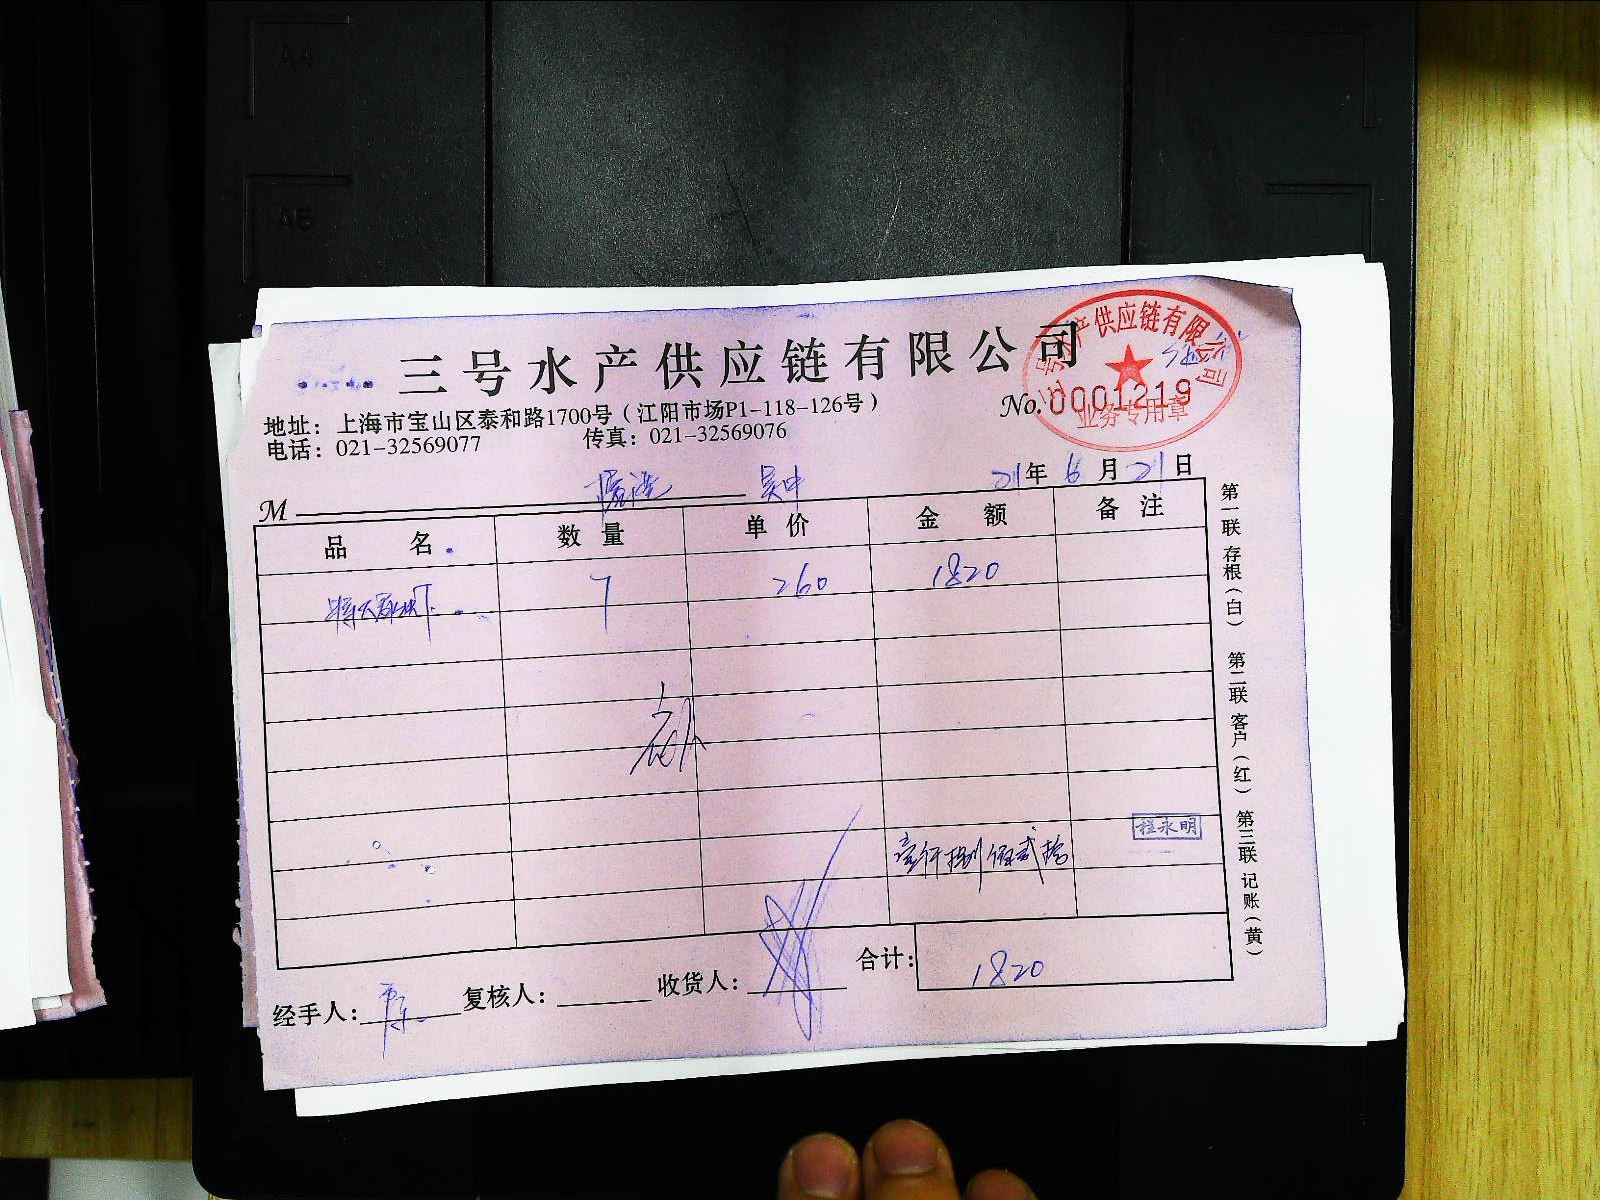 A4
A5
三号水产供应链有限公司
三号水产供应链有限公司
业务专用章
No.0001219
地址：上海市宝山区泰和路1700号（江阳市场P1-118-126号）
电话：021-32569077 传真：021-32569076
M 吴中 21年6月21日
品名 数量 单价 金额 备注
7 260 1820
壹仟捌佰贰拾
程永明
经手人： 复核人： 收货人： 合计：1820
第一联 存根（白） 第二联 客户（红） 第三联 记账（黄）